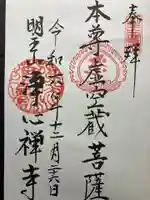 奉拝
本尊虚空蔵菩薩
令和六年十二月二六日
山 心禅寺